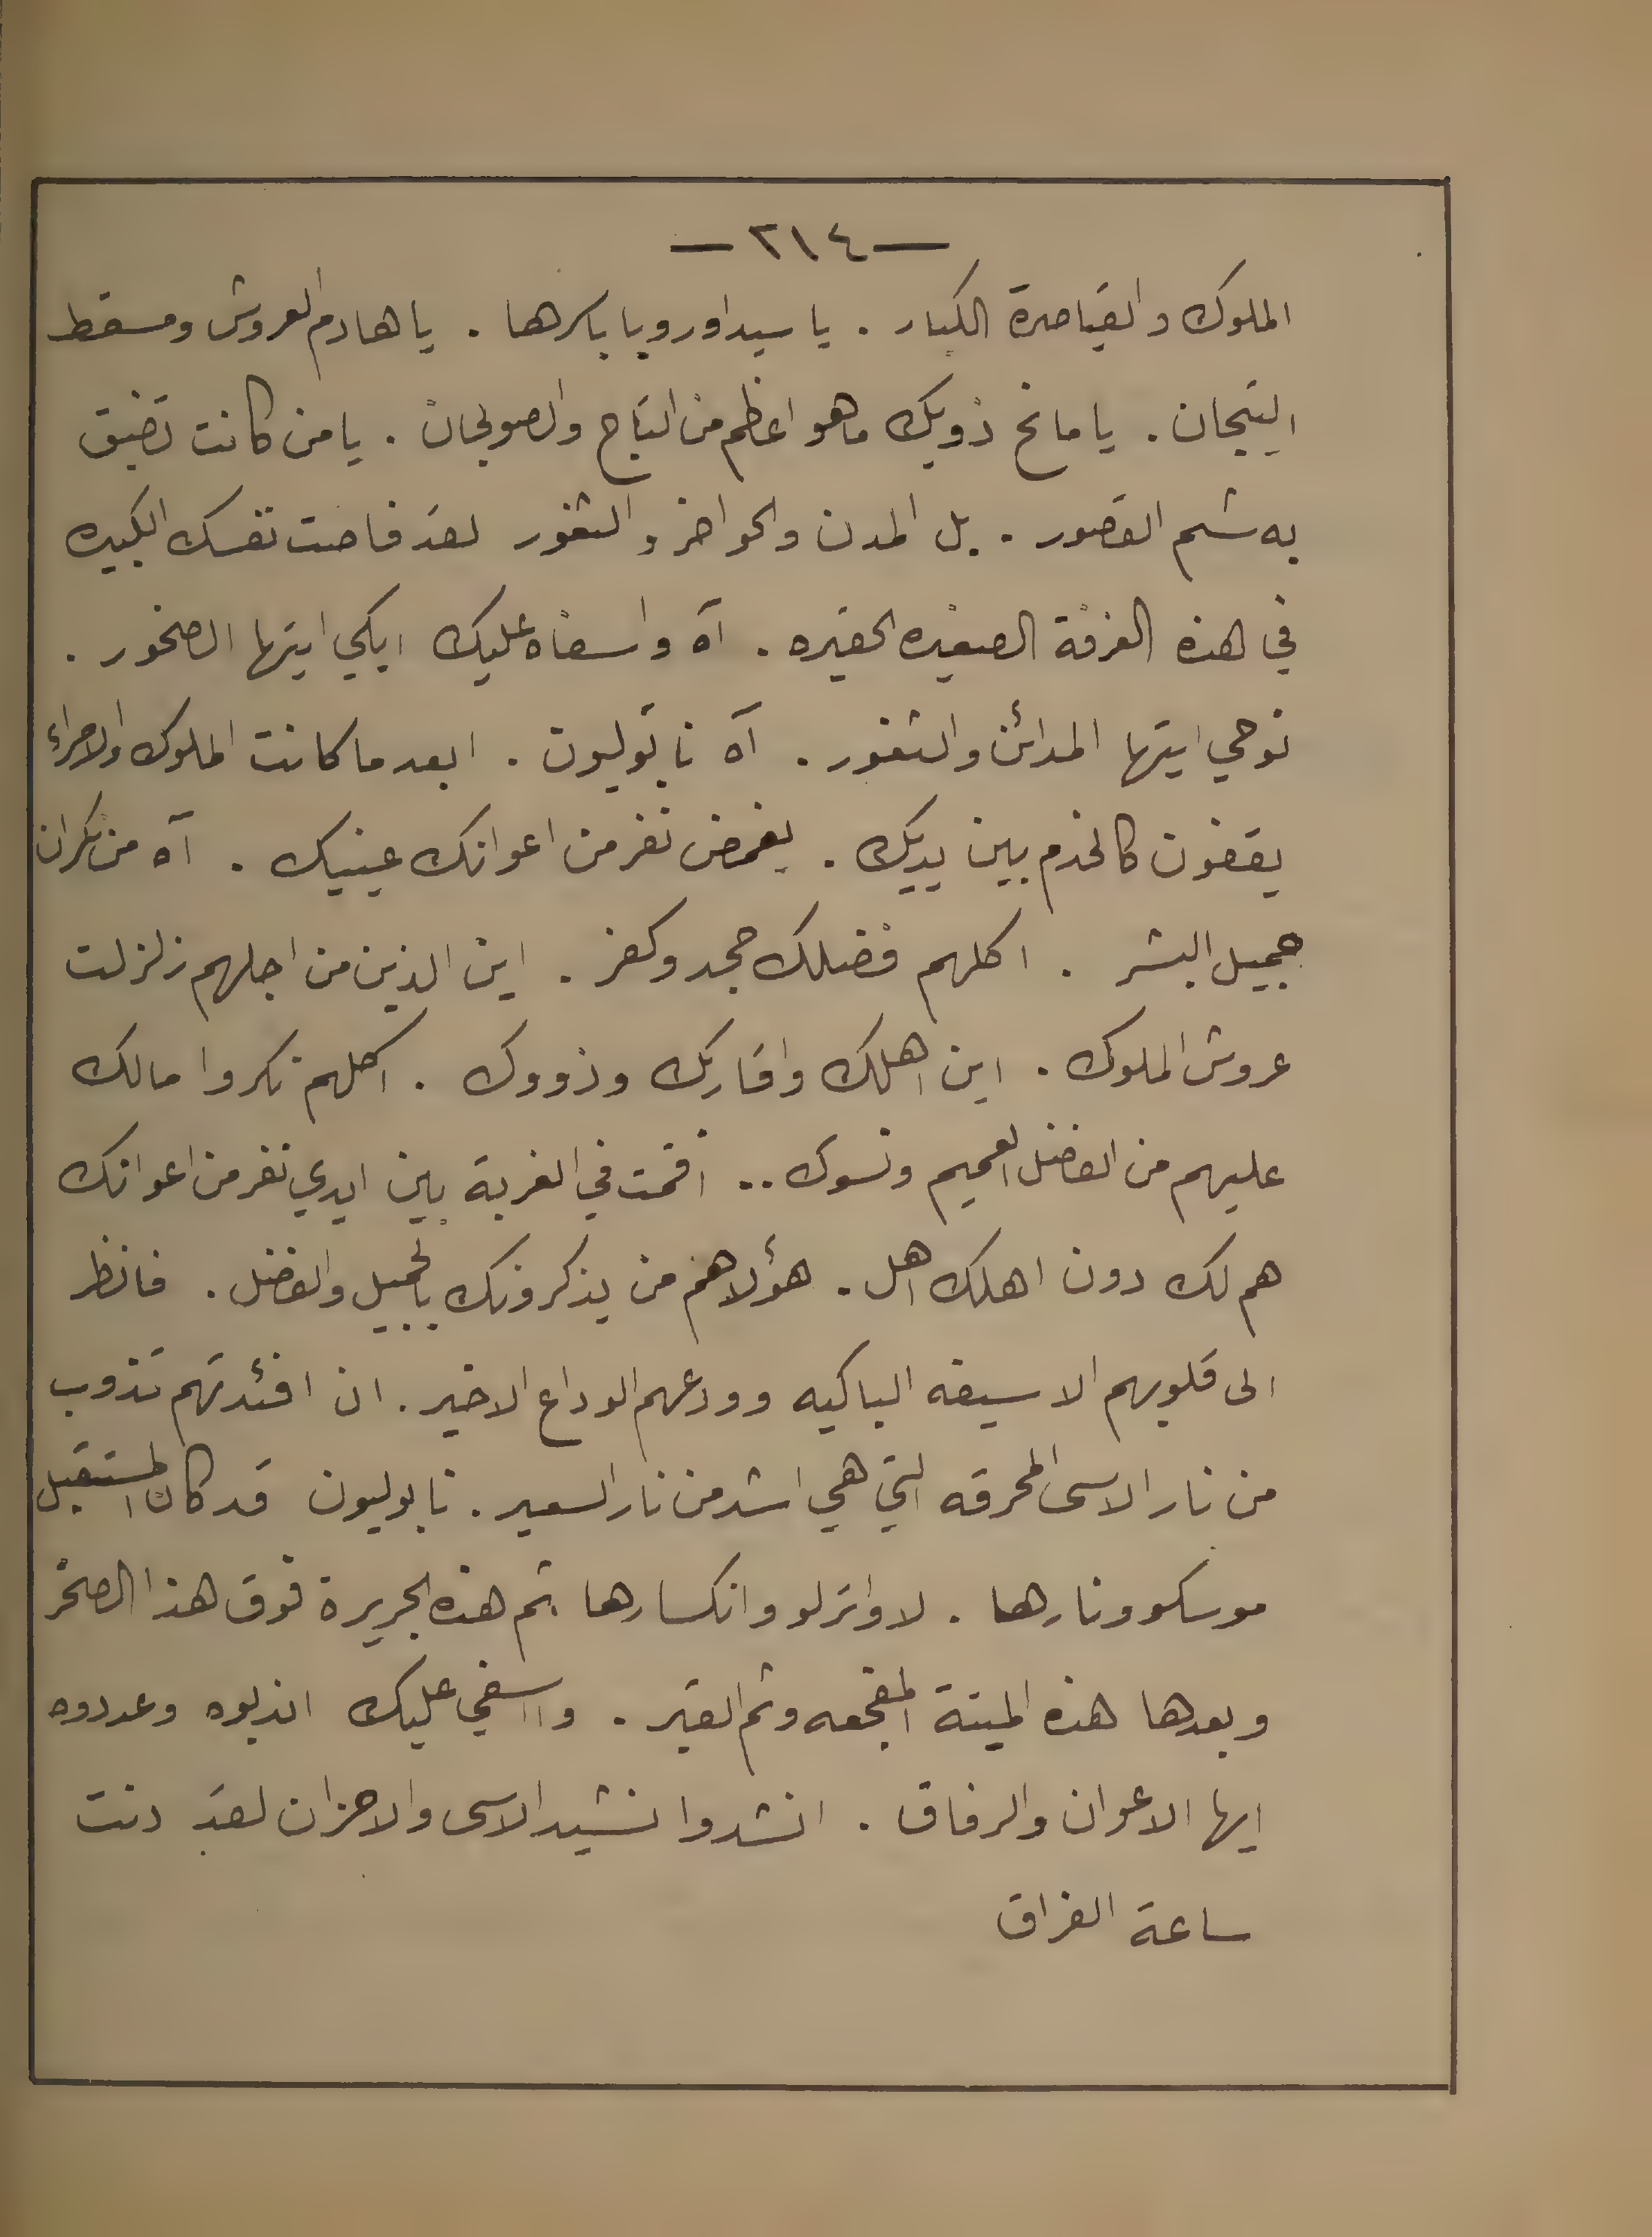 — ٢١٤ —
الملوك والقياصرة الكبار . يا سيد اوروبا باسرها . يا هادم العروش ومسقط
التيجان . يا مانح ذويك ما هو اعظم من التاج والصولجان . يا من كانت تضيق
به شم القصور . بل المدن والحواضر والثغور لقد فاضت نفسك الكبيره
في هذه الغرفة الصغيره الحقيره . آه وا سفاه عليك ابكي ايتها الصخور .
نوحي ايتها المدائن والثغور . آه نابوليون . ابعد ما كانت الملوك والامراء
يقفون كالخدم بين يديك . يغمض نفر من اعوانك عينيك . آه من نكران
جميل البشر . اكلهم فضلك جحد وكفر . اين الذين من اجلهم زلزلت
عروش الملوك . اين اهلك واقاربك وذووك . اكلهم نكروا مالك
عليهم من الفضل العميم ونسوك .. اقمت في الغربة بين ايدي نفر من اعوانك
هم لك دون اهلك اهل . هؤلا هم من يذكرونك بالجميل والفضل . فانظر
الى قلوبهم الاسيفه الباكيه وودعهم الوداع الاخير . ان افئدتهم تذوب
من نار الاسى المحرقه التي هي اشد من نار السعير . نابوليون قد كان المستقبل
موسكو ونارها . لا واترلو وانكسارها ثم هذه الجزيرة فوق هذا الصخر
وبعدها هذه الميتة المفجعه وثم القبر . وا اسفي عليك اندبوه وعددوه
ايها الاعوان والرفاق . انشدوا نشيد الاسى والاحزان لقد دنت
ساعة الفراق